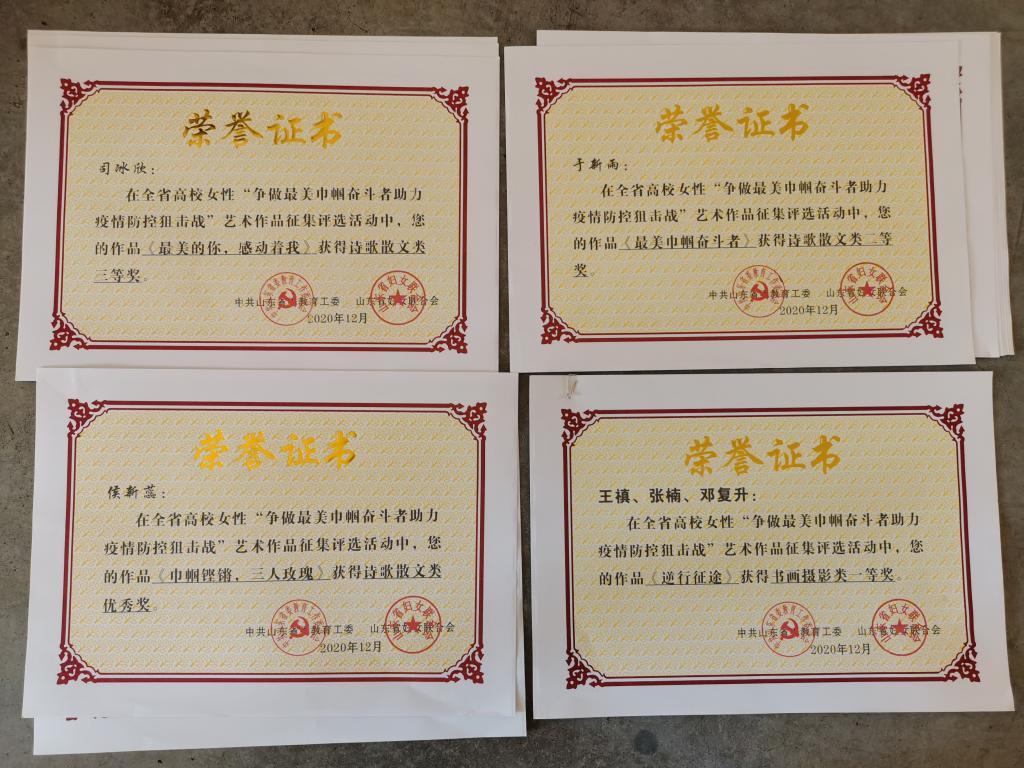 荣誉证书
司冰欣：
在全省高校女性“争做最美巾帼奋斗者助力
疫情防控狙击战”艺术作品征集评选活动中，您
的作品《最美的你，感动着我》获得诗歌散文类
三等奖。
中共山东省委教育工委 山东省妇女联合会
2020年12月
荣誉证书
于新雨：
在全省高校女性“争做最美巾帼奋斗者助力
疫情防控狙击战”艺术作品征集评选活动中，您
的作品《最美巾帼奋斗者》获得诗歌散文类二等
奖。
中共山东省委教育工委 山东省妇女联合会
2020年12月
荣誉证书
侯新蕊：
在全省高校女性“争做最美巾帼奋斗者助力
疫情防控狙击战”艺术作品征集评选活动中，您
的作品《巾帼铿锵，三人玫瑰》获得诗歌散文类
优秀奖。
中共山东省委教育工委 山东省妇女联合会
2020年12月
荣誉证书
王禛、张楠、邓复升：
在全省高校女性“争做最美巾帼奋斗者助力
疫情防控狙击战”艺术作品征集评选活动中，您
的作品《逆行征途》获得书画摄影类一等奖。
中共山东省委教育工委 山东省妇女联合会
2020年12月